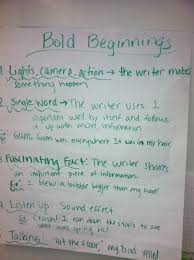 Bold Beginnings
1. Lights, camera, action → the writer makes
something happen
2. Single word → The writer uses 1
important word by itself and follows
it up with more information
Ex: Gum. Gum was everywhere. It was in my hair,
3. Fascinating Fact: The writer shares
an important piece of information.
Ex: I blew a bubble bigger than my head!
4. Listen Up: Sound effect
Ex: Crash! I ran down the stairs to see
what was going on!
5. Talking "Hit the floor," my Dad yelled